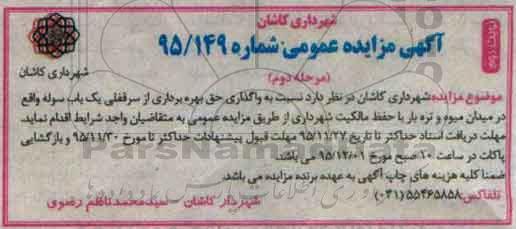 شهرداری کاشان
نوبت دوم
آگهی مزایده عمومی شماره ۹۵/۱۴۹
(مرحله دوم)
شهرداری کاشان
موضوع مزایده: شهرداری کاشان در نظر دارد نسبت به واگذاری حق بهره برداری از سرقفلی یک باب سوله واقع
در میدان میوه و تره بار با حفظ مالکیت شهرداری از طریق مزایده عمومی به متقاضیان واجد شرایط اقدام نماید.
مهلت دریافت اسناد حداکثر تا تاریخ ۹۵/۱۱/۲۷ مهلت قبول پیشنهادات حداکثر تا مورخ ۹۵/۱۱/۳۰ و بازگشایی
پاکات در ساعت ۱۰ صبح مورخ ۹۵/۱۲/۰۱ می باشد.
ضمنا کلیه هزینه های چاپ آگهی به عهده برنده مزایده می باشد.
تلفاکس: ۵۵۴۶۵۸۵۸ (۰۳۱)
شهردار کاشان سیدمحمدناظم رضوی
ParsNamadData